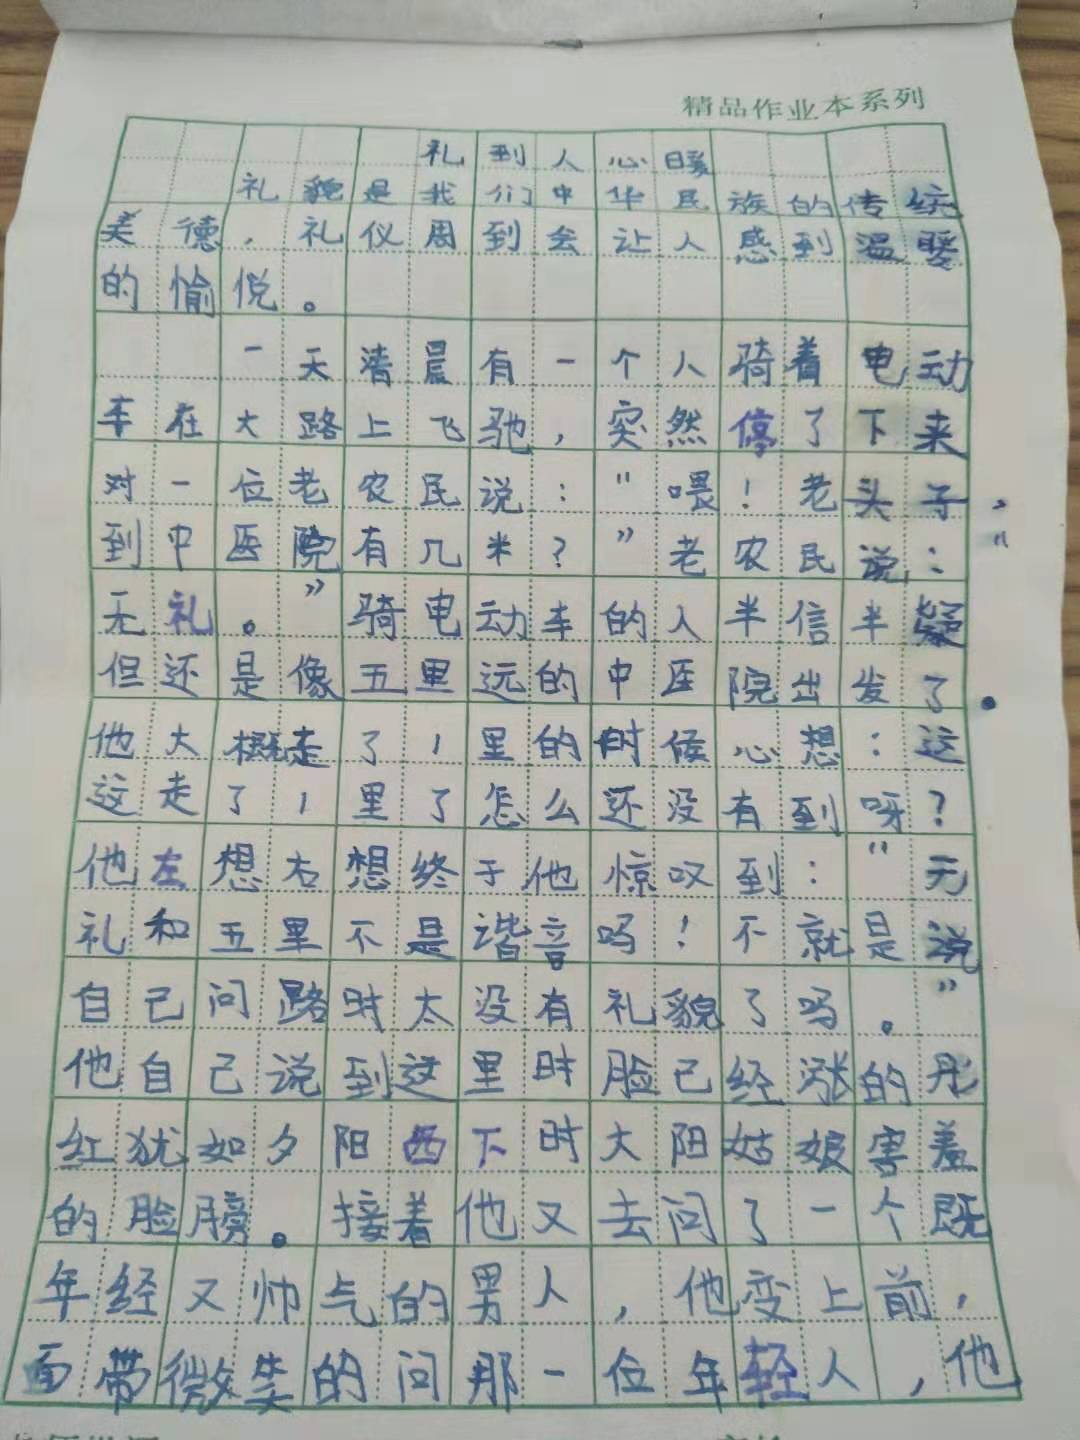 精品作业本系列
礼到人心暖
礼貌是我们中华民族的传统
美德，礼仪周到会让人感到温暖
的愉悦。
一天清晨有一个人骑着电动
车在大路上飞驰，突然停了下来
对一位老农民说：“喂！老头子，
到中医院有几米？”老农民说：“
无礼。”骑电动车的人半信半疑
但还是像五里远的中医院出发了。
他大概走了1里的时候心想：这
这走了1里了怎么还没有到呀？
他左想右想终于他惊叹到：“无
礼和五里不是谐音吗！不就是说
自己问路时太没有礼貌了吗。”
他自己说到这里时脸已经涨的彤
红犹如夕阳西下时大阳姑娘害羞
的脸膀。接着他又去问了一个既
年经又帅气的男人，他变上前，
面带微笑的问那一位年轻人，他